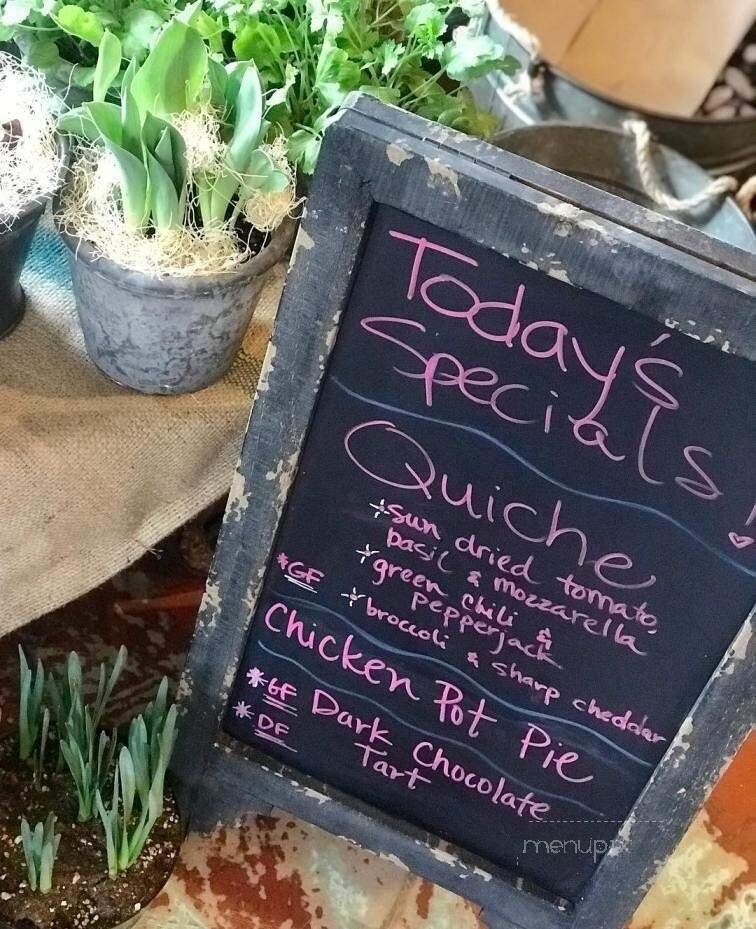 Today's
Specials!
Quiche
sun dried tomato,
basil & mozzarella
*GF green chili &
pepperjack
broccoli & sharp cheddar
Chicken Pot Pie
*GF Dark Chocolate
*DF Tart
menupix